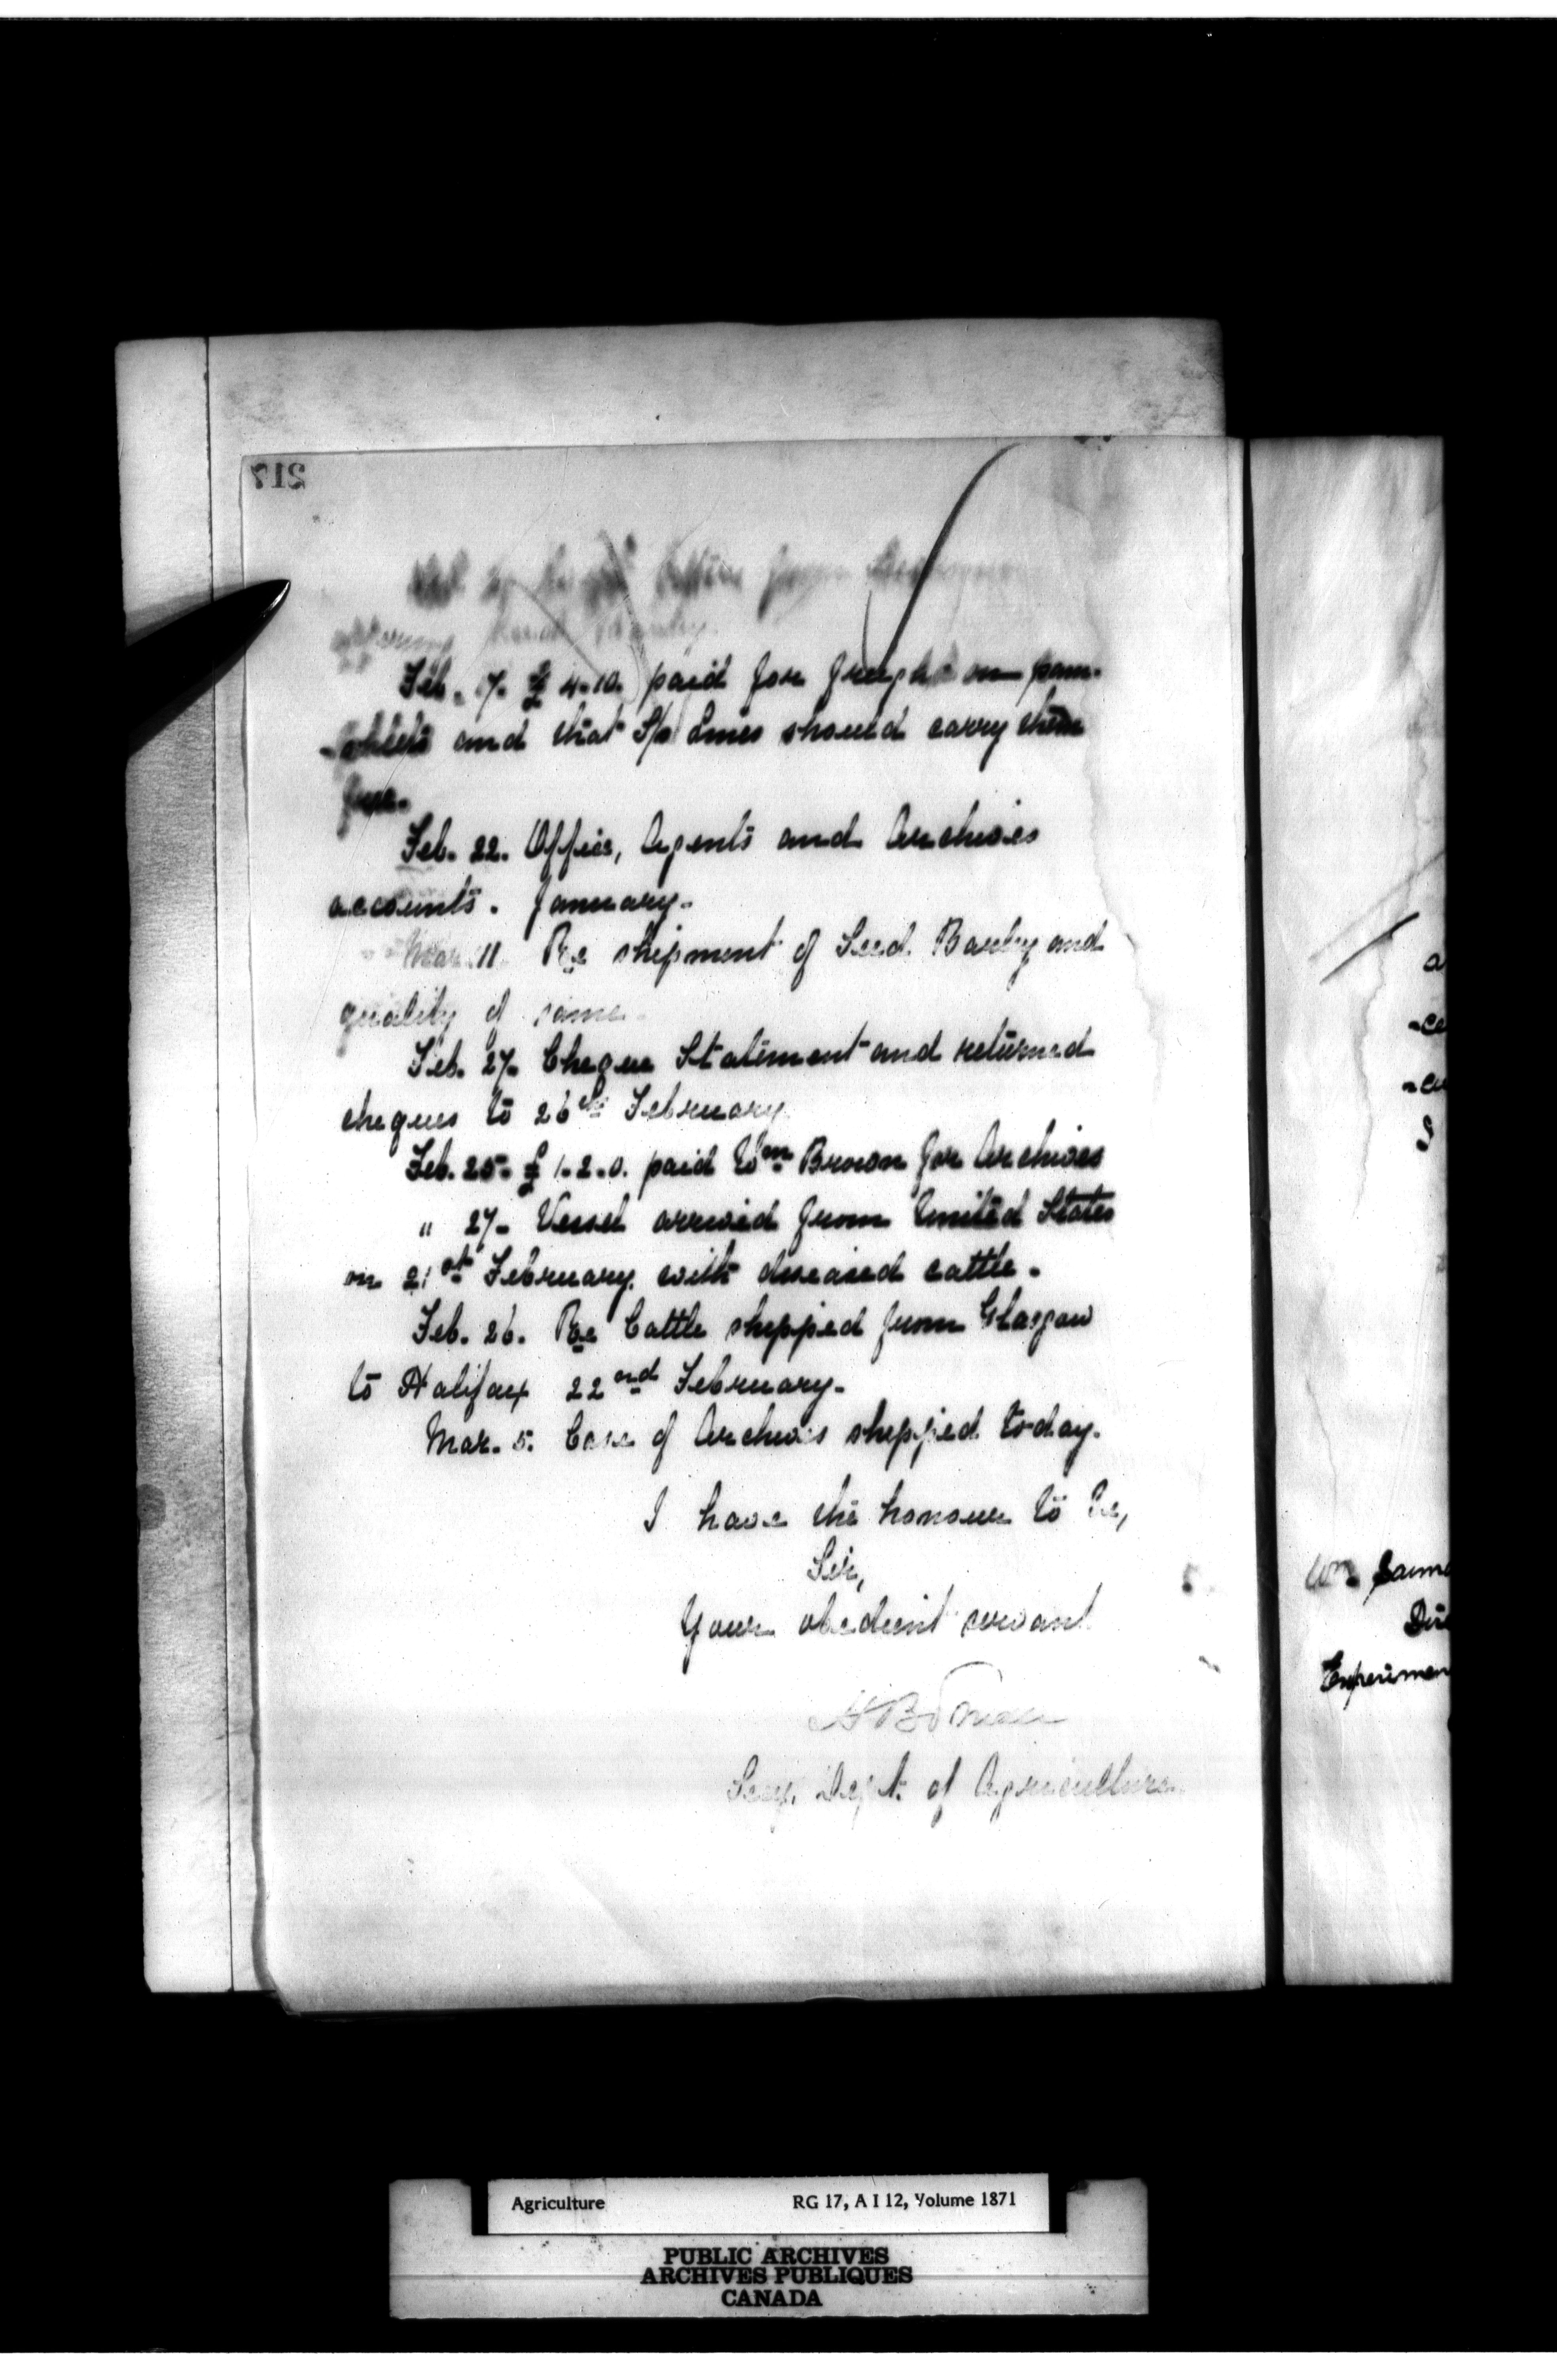 217
from
Seed Barley.
Feb. 17. £ 4.10. paid for freight on pam-
-phlets and that S/s Lines should carry them
free.
Feb. 22. Office, Agents and Archives
accounts. January.
Mar. 11 Re shipment of Seed Barley and
quality of same.
Feb. 27. Cheque Statement and returned
cheques to 26th February
Feb. 25. £ 1.2.0. paid Wm Brown for Archives
" 27. Vessel arrived from United States
on 21st February with diseased cattle.
Feb. 26. Re Cattle shipped from Glasgow
to Halifax 22nd February.
Mar. 5. Case of Archives shipped to-day.
I have the honour to be,
Sir,
Your obedient servant
H B Small
Secy. Dept. of Agriculture.
a
-ce
-cu
S
Wm Saun
Dir
Experimen
Agriculture RG 17, A I 12, Volume 1871
PUBLIC ARCHIVES
ARCHIVES PUBLIQUES
CANADA